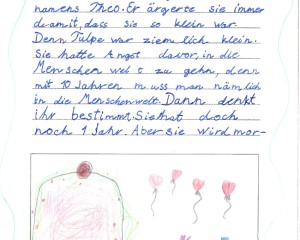 namens Theo. Er ärgerte sie immer
damit, dass sie so klein war.
Denn Tulpe war ziemlich klein.
Sie hatte Angst davor, in die
Menschenwelt zu gehn, denn
mit 10 Jahren muss man nämlich
in die Menschenwelt. Dann denkt
ihr bestimmt, Sie hat doch
noch 1 Jahr. Aber sie wird mor-